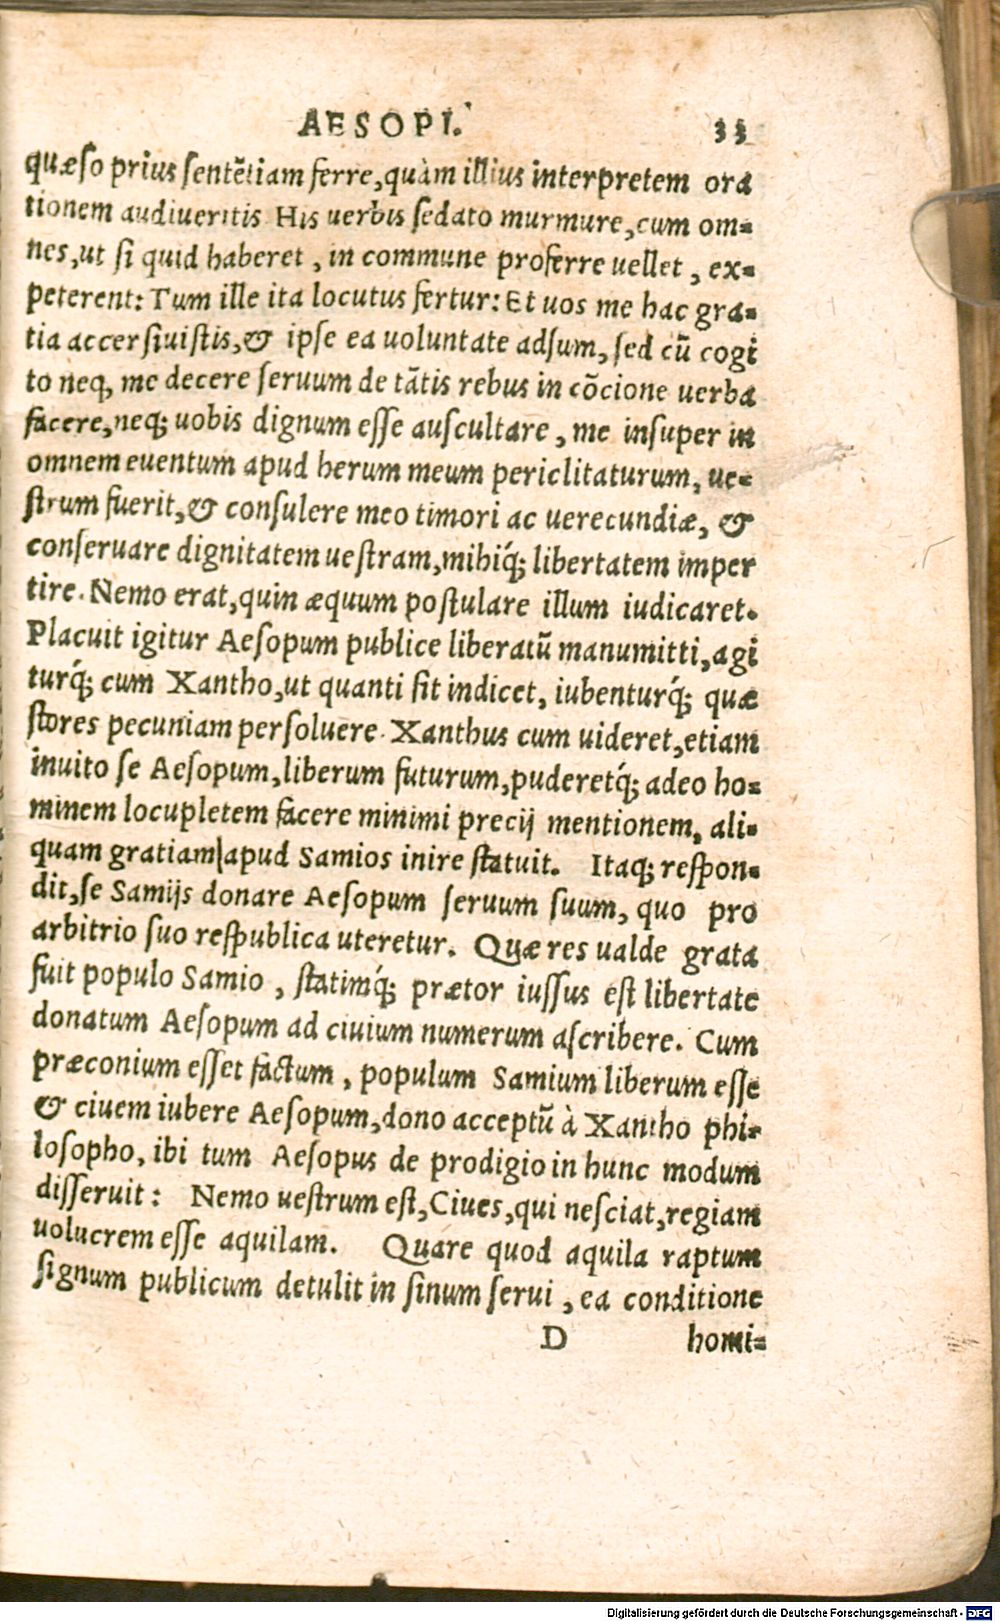 AESOPI. 33
quæso prius sentẽtiam ferre, quàm illius interpretem ora
tionem audiveritis His uerbis sedato murmure, cum om=
nes, ut si quid haberet, in commune proferre uellet, ex=
peterent: Tum ille ita locutus fertur: Et uos me hac gra=
tia accersiuistis, & ipse ea uoluntate adsum, sed cũ cogi
to neq; me decere seruum de tãtis rebus in cõcione uerba
facere, neq; uobis dignum esse auscultare, me insuper in
omnem euentum apud herum meum periclitaturum, ue=
strum fuerit, & consulere meo timori ac uerecundiæ, &
conseruare dignitatem uestram, mihiq́; libertatem imper
tire. Nemo erat, quin æquum postulare illum iudicaret.
Placuit igitur Aesopum publice liberatũ manumitti, agi
turq́; cum Xantho, ut quanti sit indicet, iubenturq́; quæ
stores pecuniam persoluere. Xanthus cum uideret, etiam
inuito se Aesopum, liberum futurum, puderetq́; adeo ho=
minem locupletem facere minimi precij mentionem, ali=
quam gratiam apud Samios inire statuit. Itaq; respon=
dit, se Samijs donare Aesopum seruum suum, quo pro
arbitrio suo respublica uteretur. Quæ res ualde grata
fuit populo Samio, statimq́; prætor iussus est libertate
donatum Aesopum ad ciuium numerum ascribere. Cum
præconium esset factum, populum Samium liberum esse
& ciuem iubere Aesopum, dono acceptũ à Xantho phi=
losopho, ibi tum Aesopus de prodigio in hunc modum
disseruit: Nemo uestrum est, Ciues, qui nesciat, regiam
uolucrem esse aquilam. Quare quod aquila raptum
signum publicum detulit in sinum serui, ea conditione
D homi=
Digitalisierung gefördert durch die Deutsche Forschungsgemeinschaft - DFG